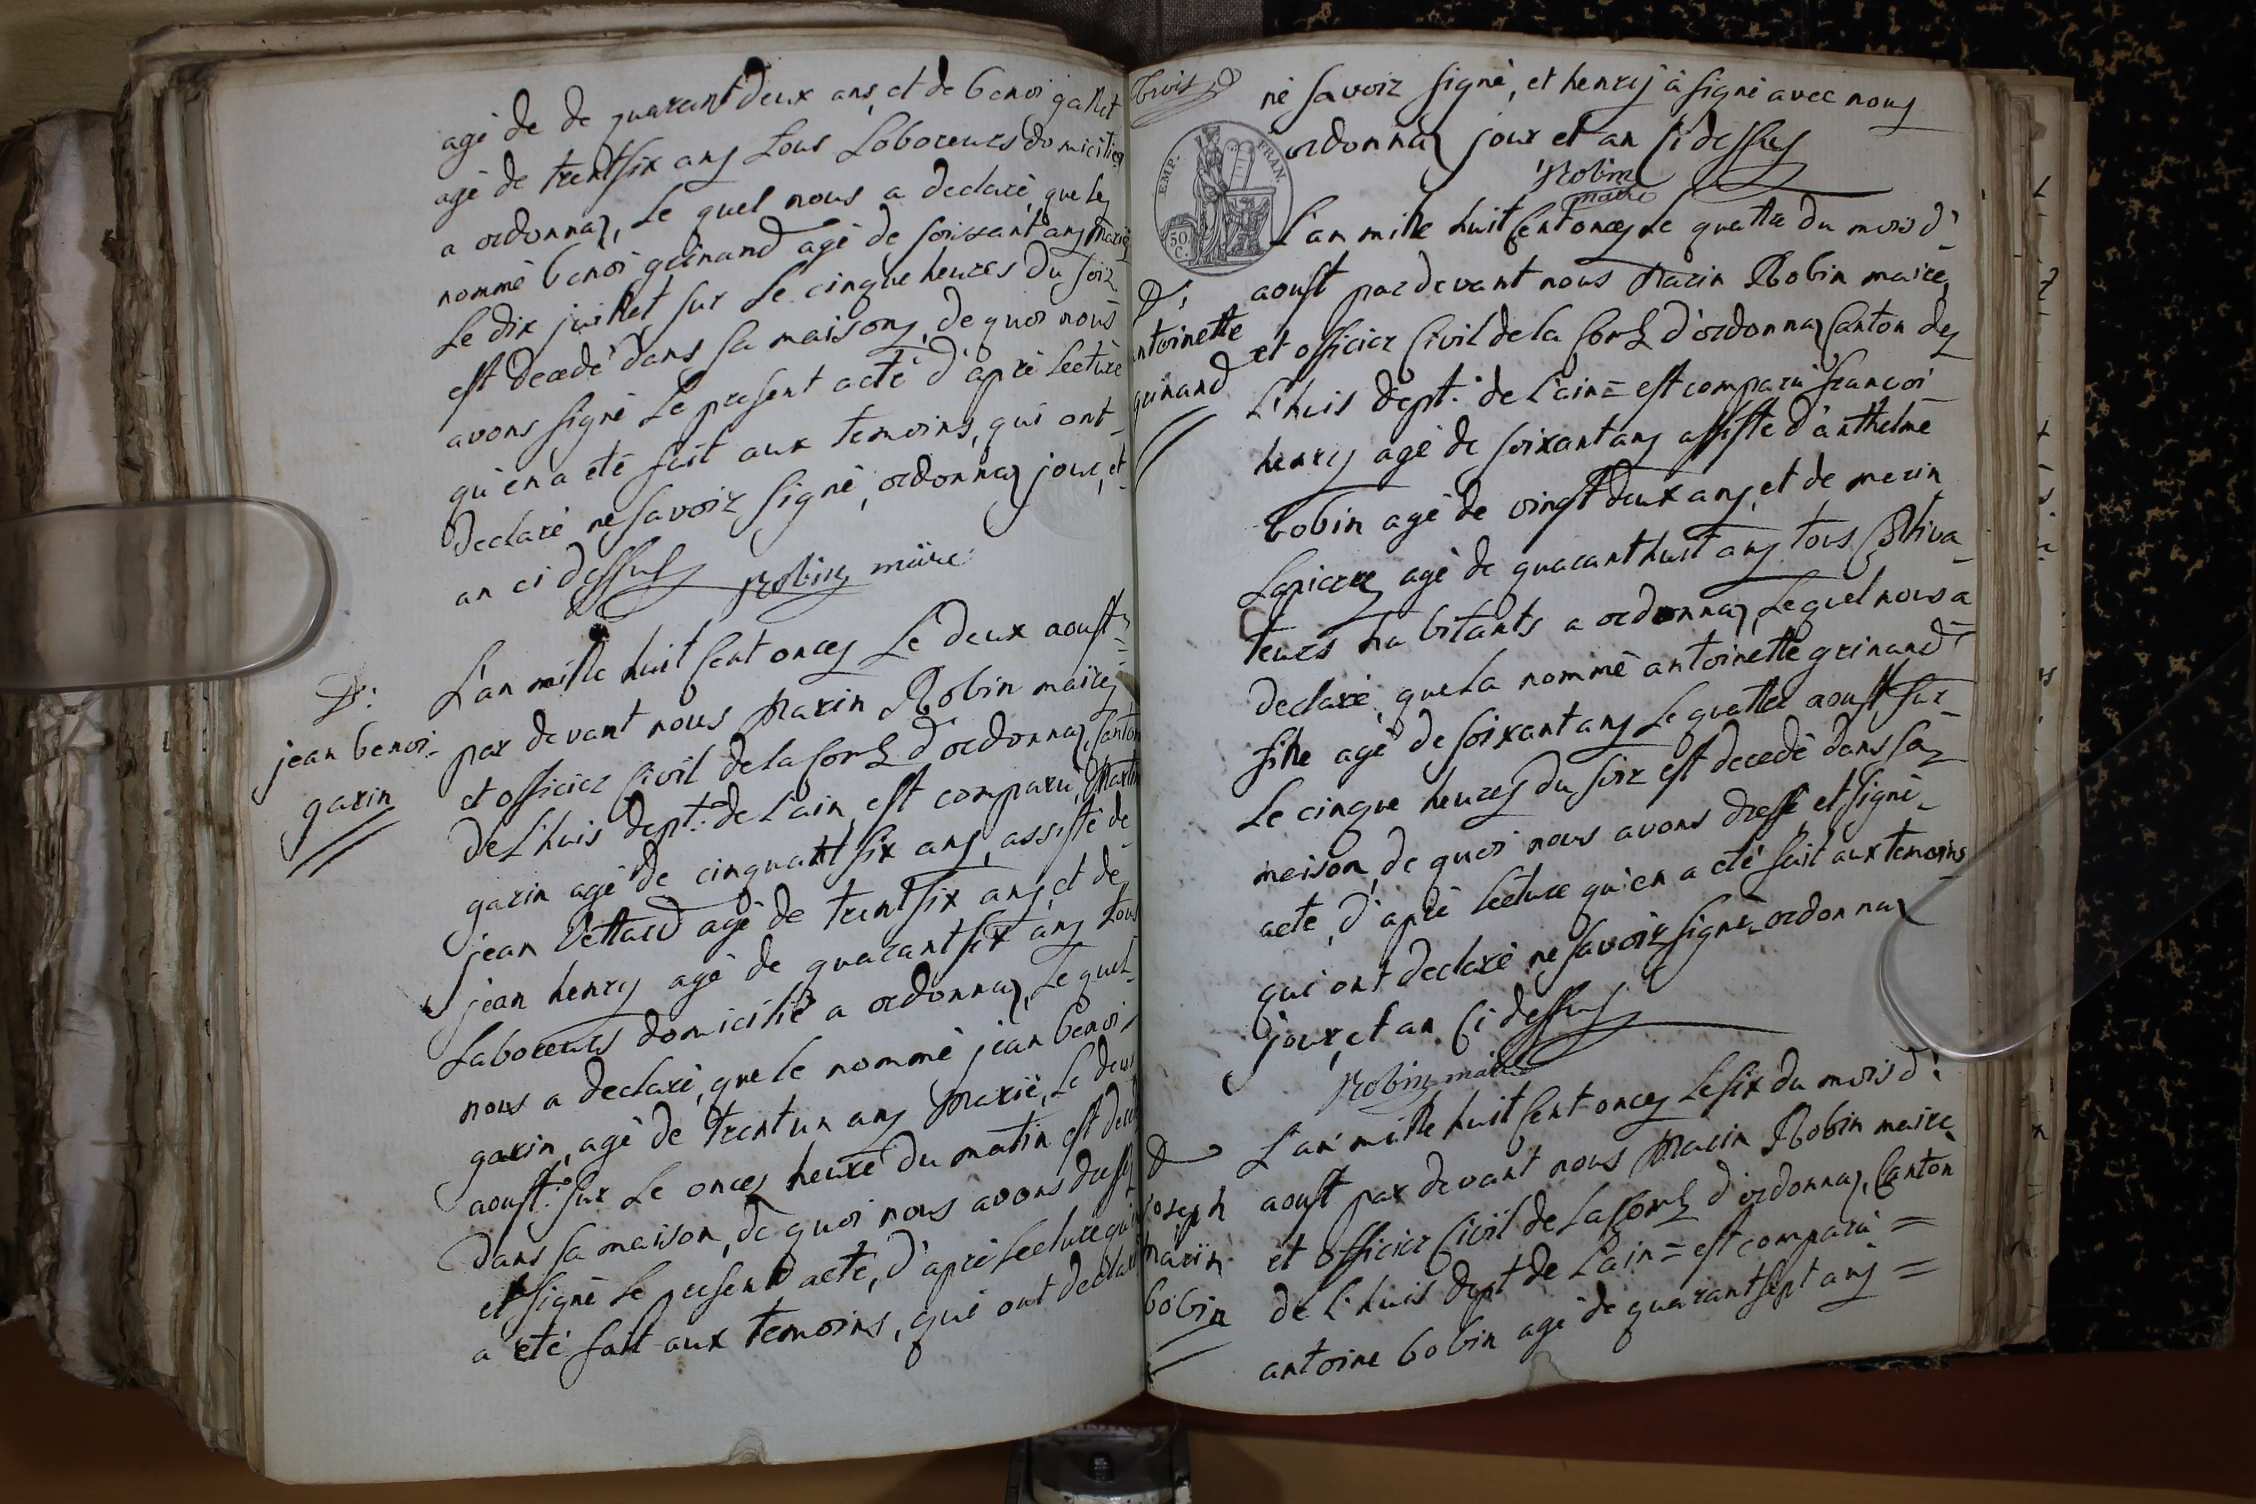 agé de de quarant deux ans, et de benoi gallet
agé de trentsix ans tous Laboreurs domicilies
a ordonnaz, Le quel nous a declaré, que le
nommé benoi grinand agé de soixant ans marié
Le dix juillet sur Le cinque heures du soir
est decedé dans sa maison, de quoi nous
avons signé Le present acté d'apré Lecture
qu'en a eté fait aux temoins, qui ont
declaré ne savoir signé, ordonnaz jour, et
an ci dessus Robin maire
D:
jean benoi
garin
L'an mille huit Cent onze Le deux aoust
par devant nous Marin Robin maire
et officier Civil de la Com d'ordonnaz, Canton
de L'huis dept: de L'ain est comparu, Martin
garin agé de cinquant six ans, assisté de
jean Vettard agé de trentsix ans, et de
jean henry agé de quarantsix ans tous
Laboreurs domicilié a ordonnaz, Le quel
nous a declaré, que le nommé jean benoi
garin, agé de trent un ans Marié, Le deux
aoust: sur Le onze heure du matin est decedé
dans sa maison, de quoi nous avons dressé
et signé Le present acte, d'apré Lecture qu'en
a eté fait aux temoins, qui ont declaré
trois
né savoir signé, et henry à signé avec nous
ordonnaz jour et an Ci dessus
Robin
maire
EMP. FRAN.
50 C.
D:
antoinette
grinand
L'an mille huit Cent onze Le quattre du mois d'
aoust par devant nous Marin Robin maire,
et officier Civil de la Com d'ordonnaz Canton de
L'huis dept: de L'ain = est comparu francoi
henry agé de soixant ans assisté d'anthelme
bobin agé de vingt deux ans, et de merin
Lapierre agé de quarant huit ans tous Cultiva-
teurs habitants a ordonnaz, Le quel nous a
declaré, que La nommé antoinette grinand
fille agé de soixant ans Le quattre aoust sur
Le cinque heures du soir est decedé dans sa
meison, de quoi nous avons dressé et signé
acte, d'apré Lecture qu'en a eté fait aux temoins
qui ont declaré ne savoir signé, ordonnaz
jour, et an Ci dessus
Robin maire
D
joseph
marin
bobin
L'an mille huit Cent onze Le six du mois d'
aoust par devant nous Marin Robin maire
et officier Civil de La Com d'ordonnaz, Canton
de L'huis dept de L'ain = est comparu =
antoine bobin agé de quarantsept ans =